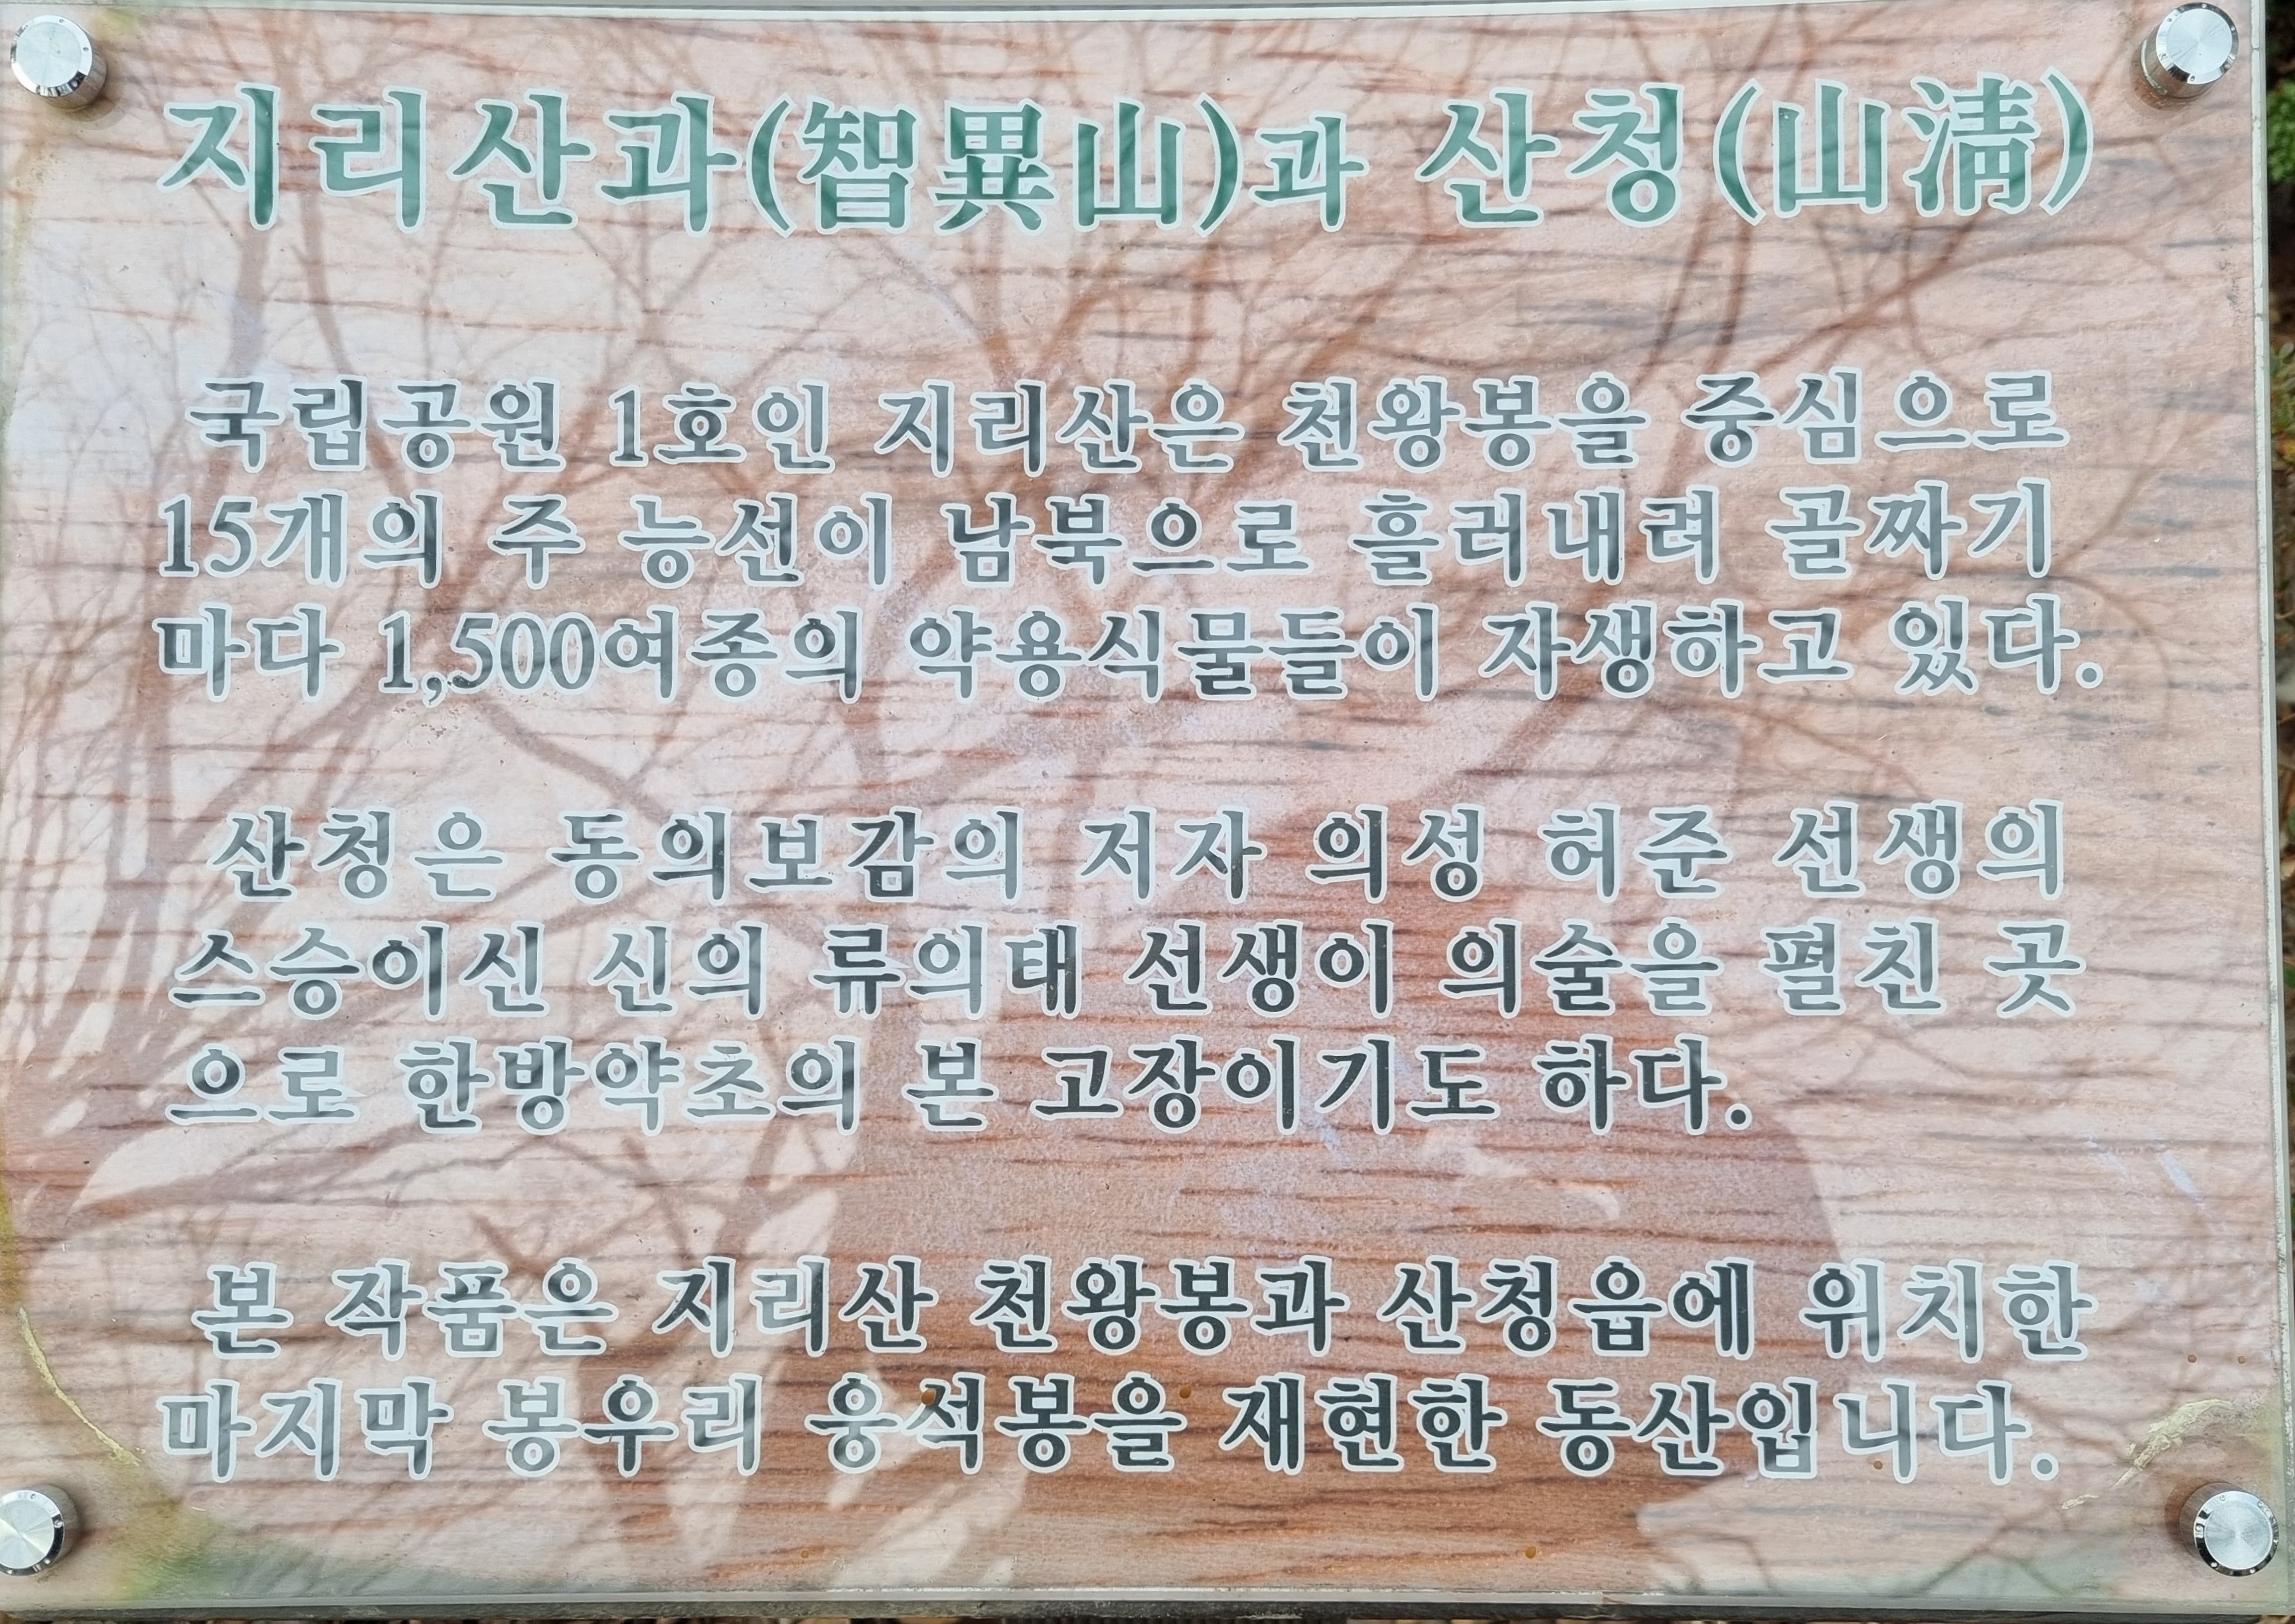 지리산과(智異山)과 산청(山淸)
국립공원 1호인 지리산은 천왕봉을 중심으로
15개의 주 능선이 남북으로 흘러내려 골짜기
마다 1,500여종의 약용식물들이 자생하고 있다.
산청은 동의보감의 저자 의성 허준 선생의
스승이신 신의 류의태 선생이 의술을 펼친 곳
으로 한방약초의 본 고장이기도 하다.
본 작품은 지리산 천왕봉과 산청읍에 위치한
마지막 봉우리 웅석봉을 재현한 동산입니다.